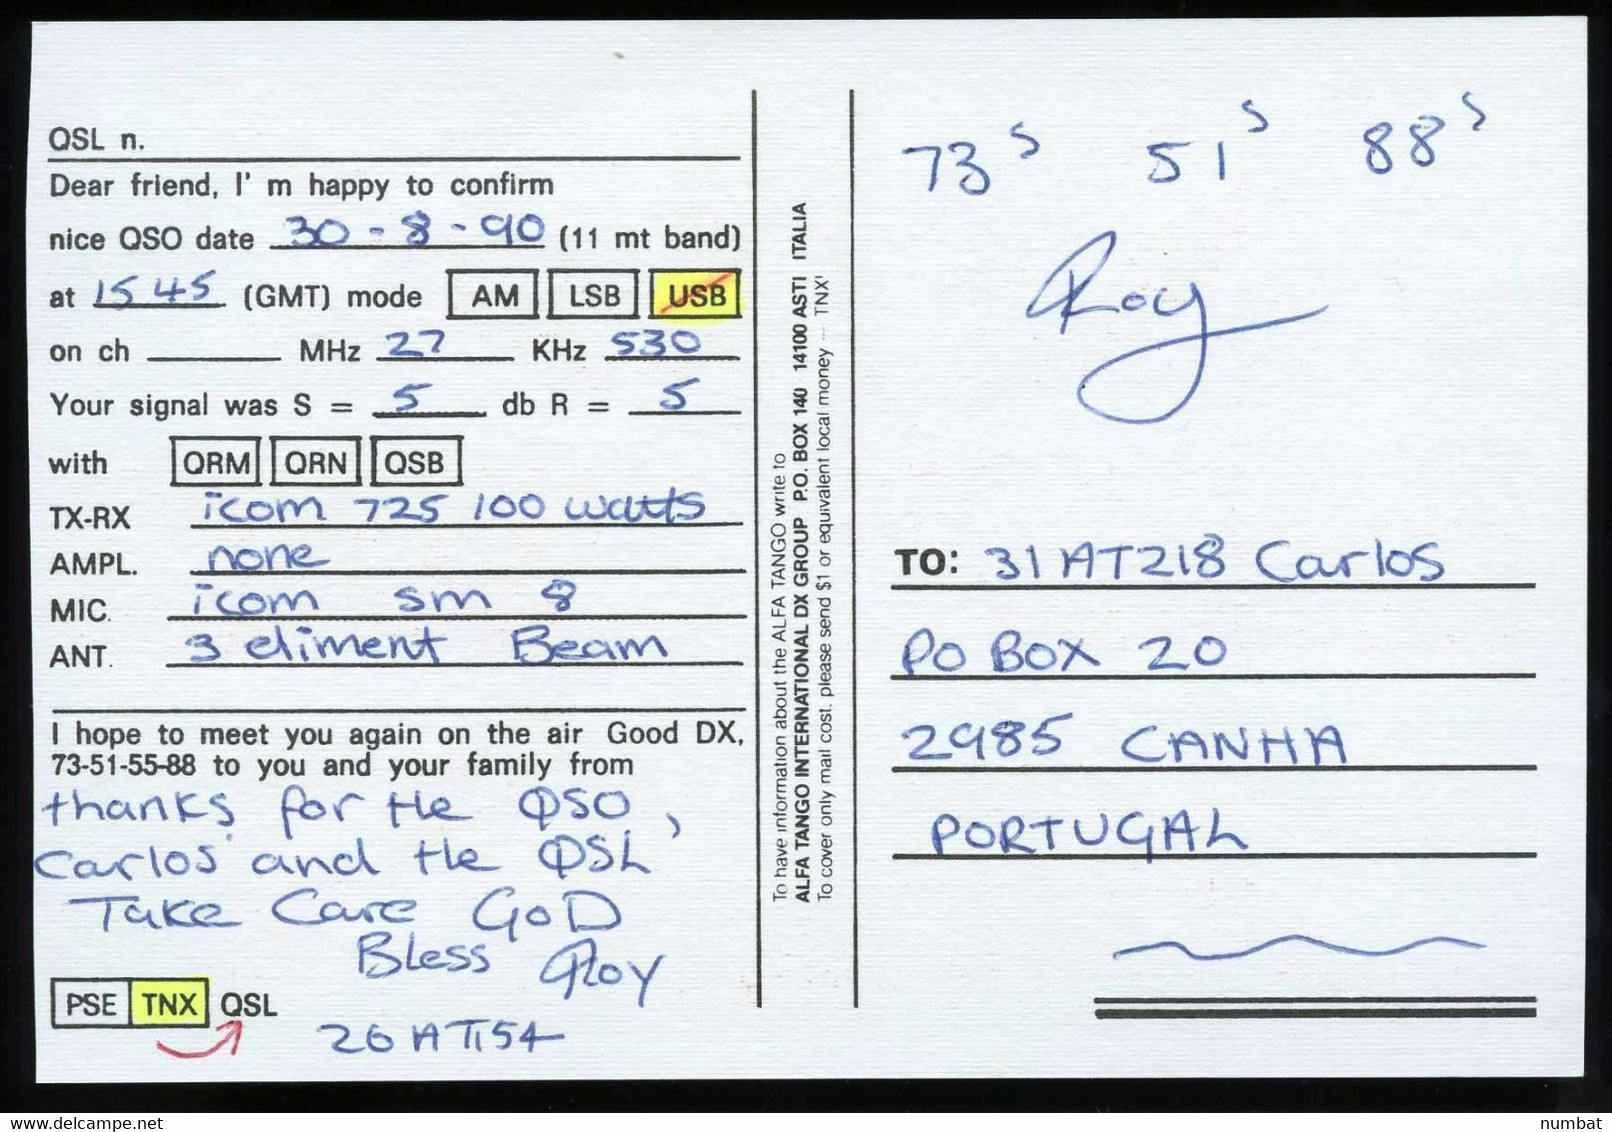 QSL n.
Dear friend, I' m happy to confirm
nice QSO date 30 - 8 - 90 (11 mt band)
at 1545 (GMT) mode AM LSB USB
on ch MHz 27 KHz 530
Your signal was S = 5 db R = 5
with QRM QRN QSB
TX-RX icom 725 100 watts
AMPL. none
MIC. icom sm 8
ANT. 3 eliment Beam
I hope to meet you again on the air Good DX,
73-51-55-88 to you and your family from
thanks for the QSO,
Carlos and the QSL
Take Care GoD
Bless Roy
PSE TNX QSL
26 AT154
To have information about the ALFA TANGO write to
ALFA TANGO INTERNATIONAL DX GROUP P.O. BOX 140 14100 ASTI ITALIA
To cover only mail cost, please send $1 or equivalent local money — TNX'
73s 51s 88s
Roy
TO: 31AT218 Carlos
PO BOX 20
2985 CANHA
PORTUGAL
www.delcampe.net
numbat